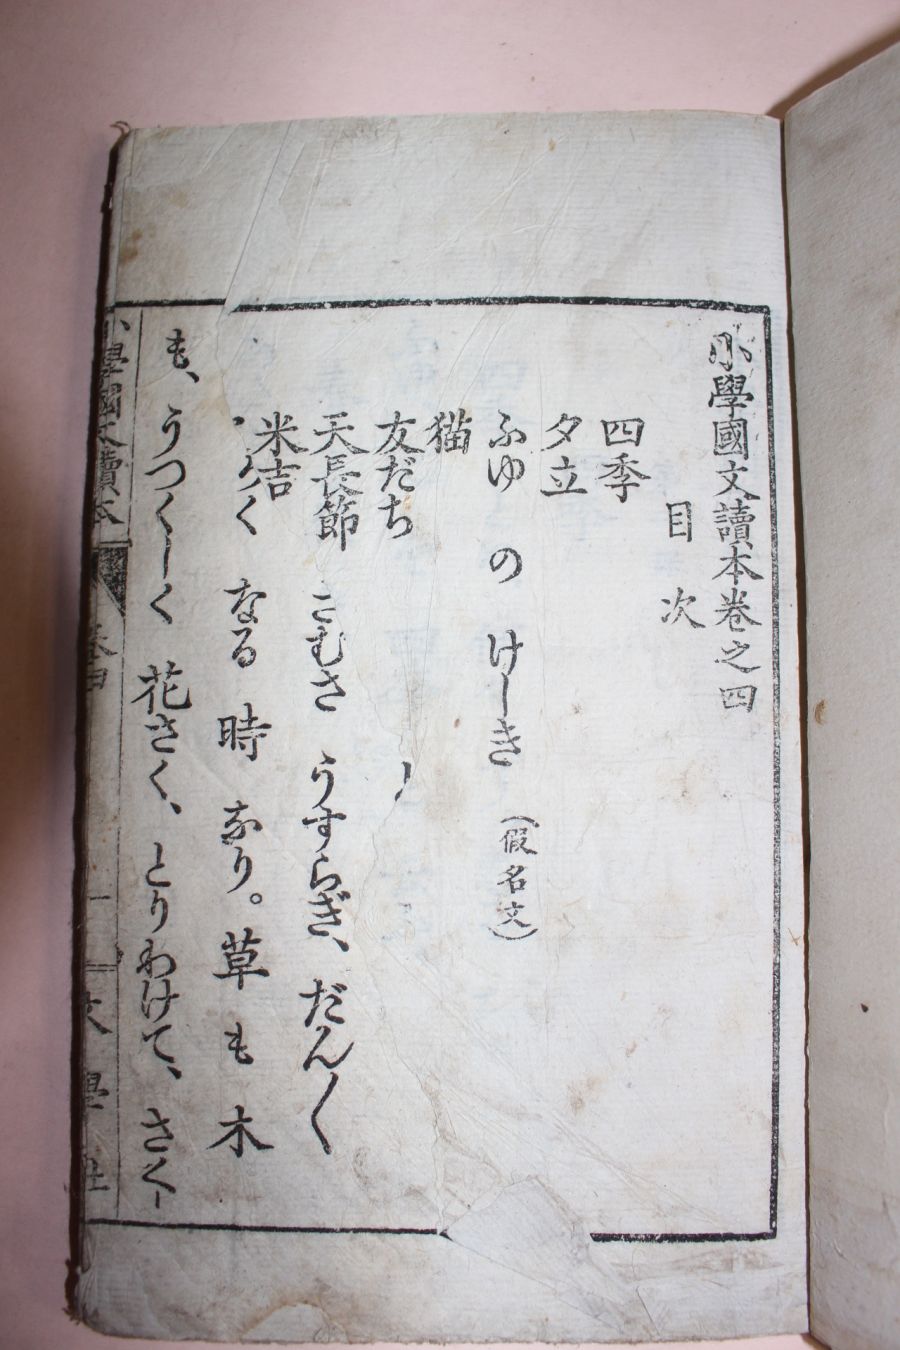 小學國文讀本巻之四
目次
四季
夕立
ふゆ の けしき (假名文)
猫
友だち
天長節
さむさ うすらぎ、だん〳〵
米吉
く なる 時 なり。草 も 木
も、うつくしく 花さく、とりわけて、さく
小學國文讀本 巻四 一 文學社